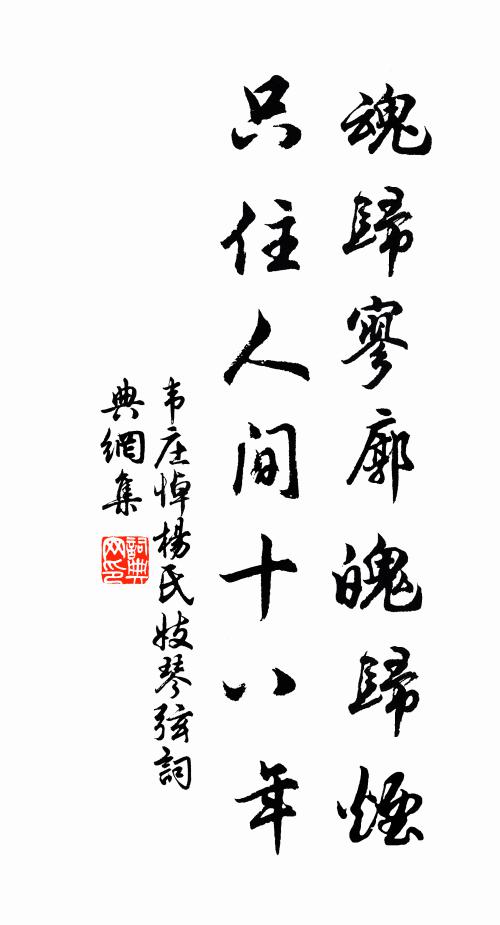 魂歸寥廓魄歸煙
只住人間十八年
韦庄悼楊氏妓琴弦詞
典網集
詞典网印